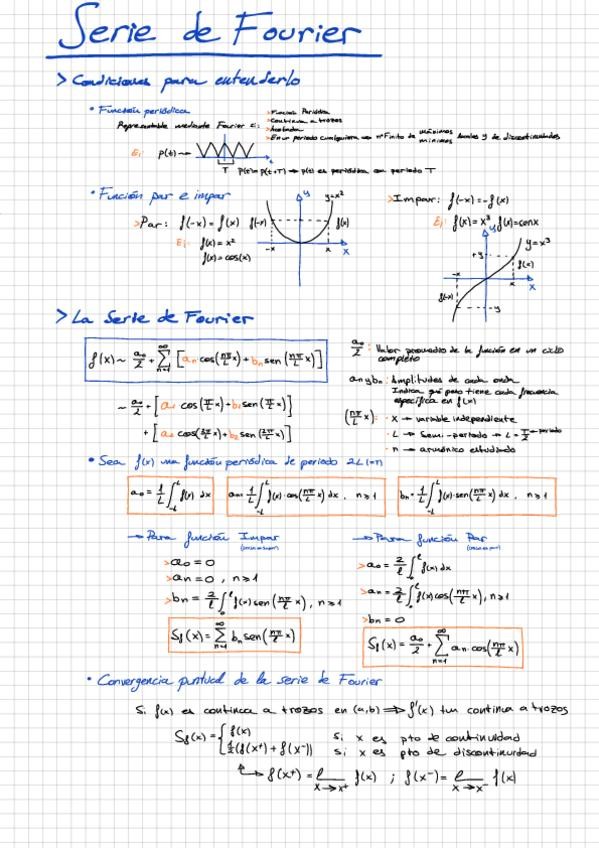 Serie de Fourier
> Condiciones para entenderlo
• Función periódica
Representable mediante Fourier si:
>Función Periódica
>Continua a trozos
>Acotada
>En un periodo cualquiera → nº Finito de máximos mínimos locales y de discontinuidades
Ej: p(t) →
T p(t) = p(t+T) → p(t) es periódica con periodo T
• Función par e impar
>Par: f(-x) = f(x)
Ej: f(x) = x²
f(x) = cos(x)
f(-x) y y=x² f(x)
-x x x
>Impar: f(-x) = -f(x)
Ej: f(x) = x³ f(x) = senx
y y=x³
+y f(x)
-x x x
f(-x) -y
> La Serie de Fourier
f(x) ~ a₀/2 + ∑ₙ₌₁^∞ [aₙ cos(nπ/L x) + bₙ sen(nπ/L x)]
~ a₀/2 + [a₁ cos(π/L x) + b₁ sen(π/L x)]
+ [a₂ cos(2π/L x) + b₂ sen(2π/L x)]
a₀/2 : Valor promedio de la función en un ciclo completo
an y bn : Amplitudes de cada onda
Indica qué peso tiene cada frecuencia específica en f(x)
(nπ/L x): · x → variable independiente
· L → Semi-periodo → L = T/2 → periodo
· n → armónico estudiado
• Sea f(x) una función periódica de periodo 2L (=T)
a₀ = 1/L ∫₋L^L f(x) dx
an = 1/L ∫₋L^L f(x)·cos(nπ/L x) dx, n≥1
bn = 1/L ∫₋L^L f(x)·sen(nπ/L x) dx, n≥1
→ Para función Impar
>a₀ = 0
>an = 0, n≥1
>bn = 2/L ∫₀^L f(x) sen(nπ/L x), n≥1
Sf(x) = ∑ₙ₌₁^∞ bn sen(nπ/L x)
→ Para función Par
>a₀ = 2/L ∫₀^L f(x) dx
>an = 2/L ∫₀^L f(x) cos(nπ/L x), n≥1
>bn = 0
Sf(x) = a₀/2 + ∑ₙ₌₁^∞ an·cos(nπ/L x)
• Convergencia puntual de la serie de Fourier
Si f(x) es continua a trozos en (a,b) ⟹ f'(x) tmn continua a trozos
Sf(x) = { f(x) si x es pto de continuidad
½(f(x⁺) + f(x⁻)) si x es pto de discontinuidad
↳ f(x⁺) = l x→x⁺ f(x) ; f(x⁻) = l x→x⁻ f(x)